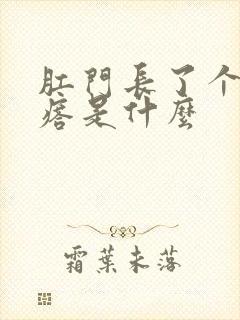 肛門長了个
痞是什麼
霜葉未落